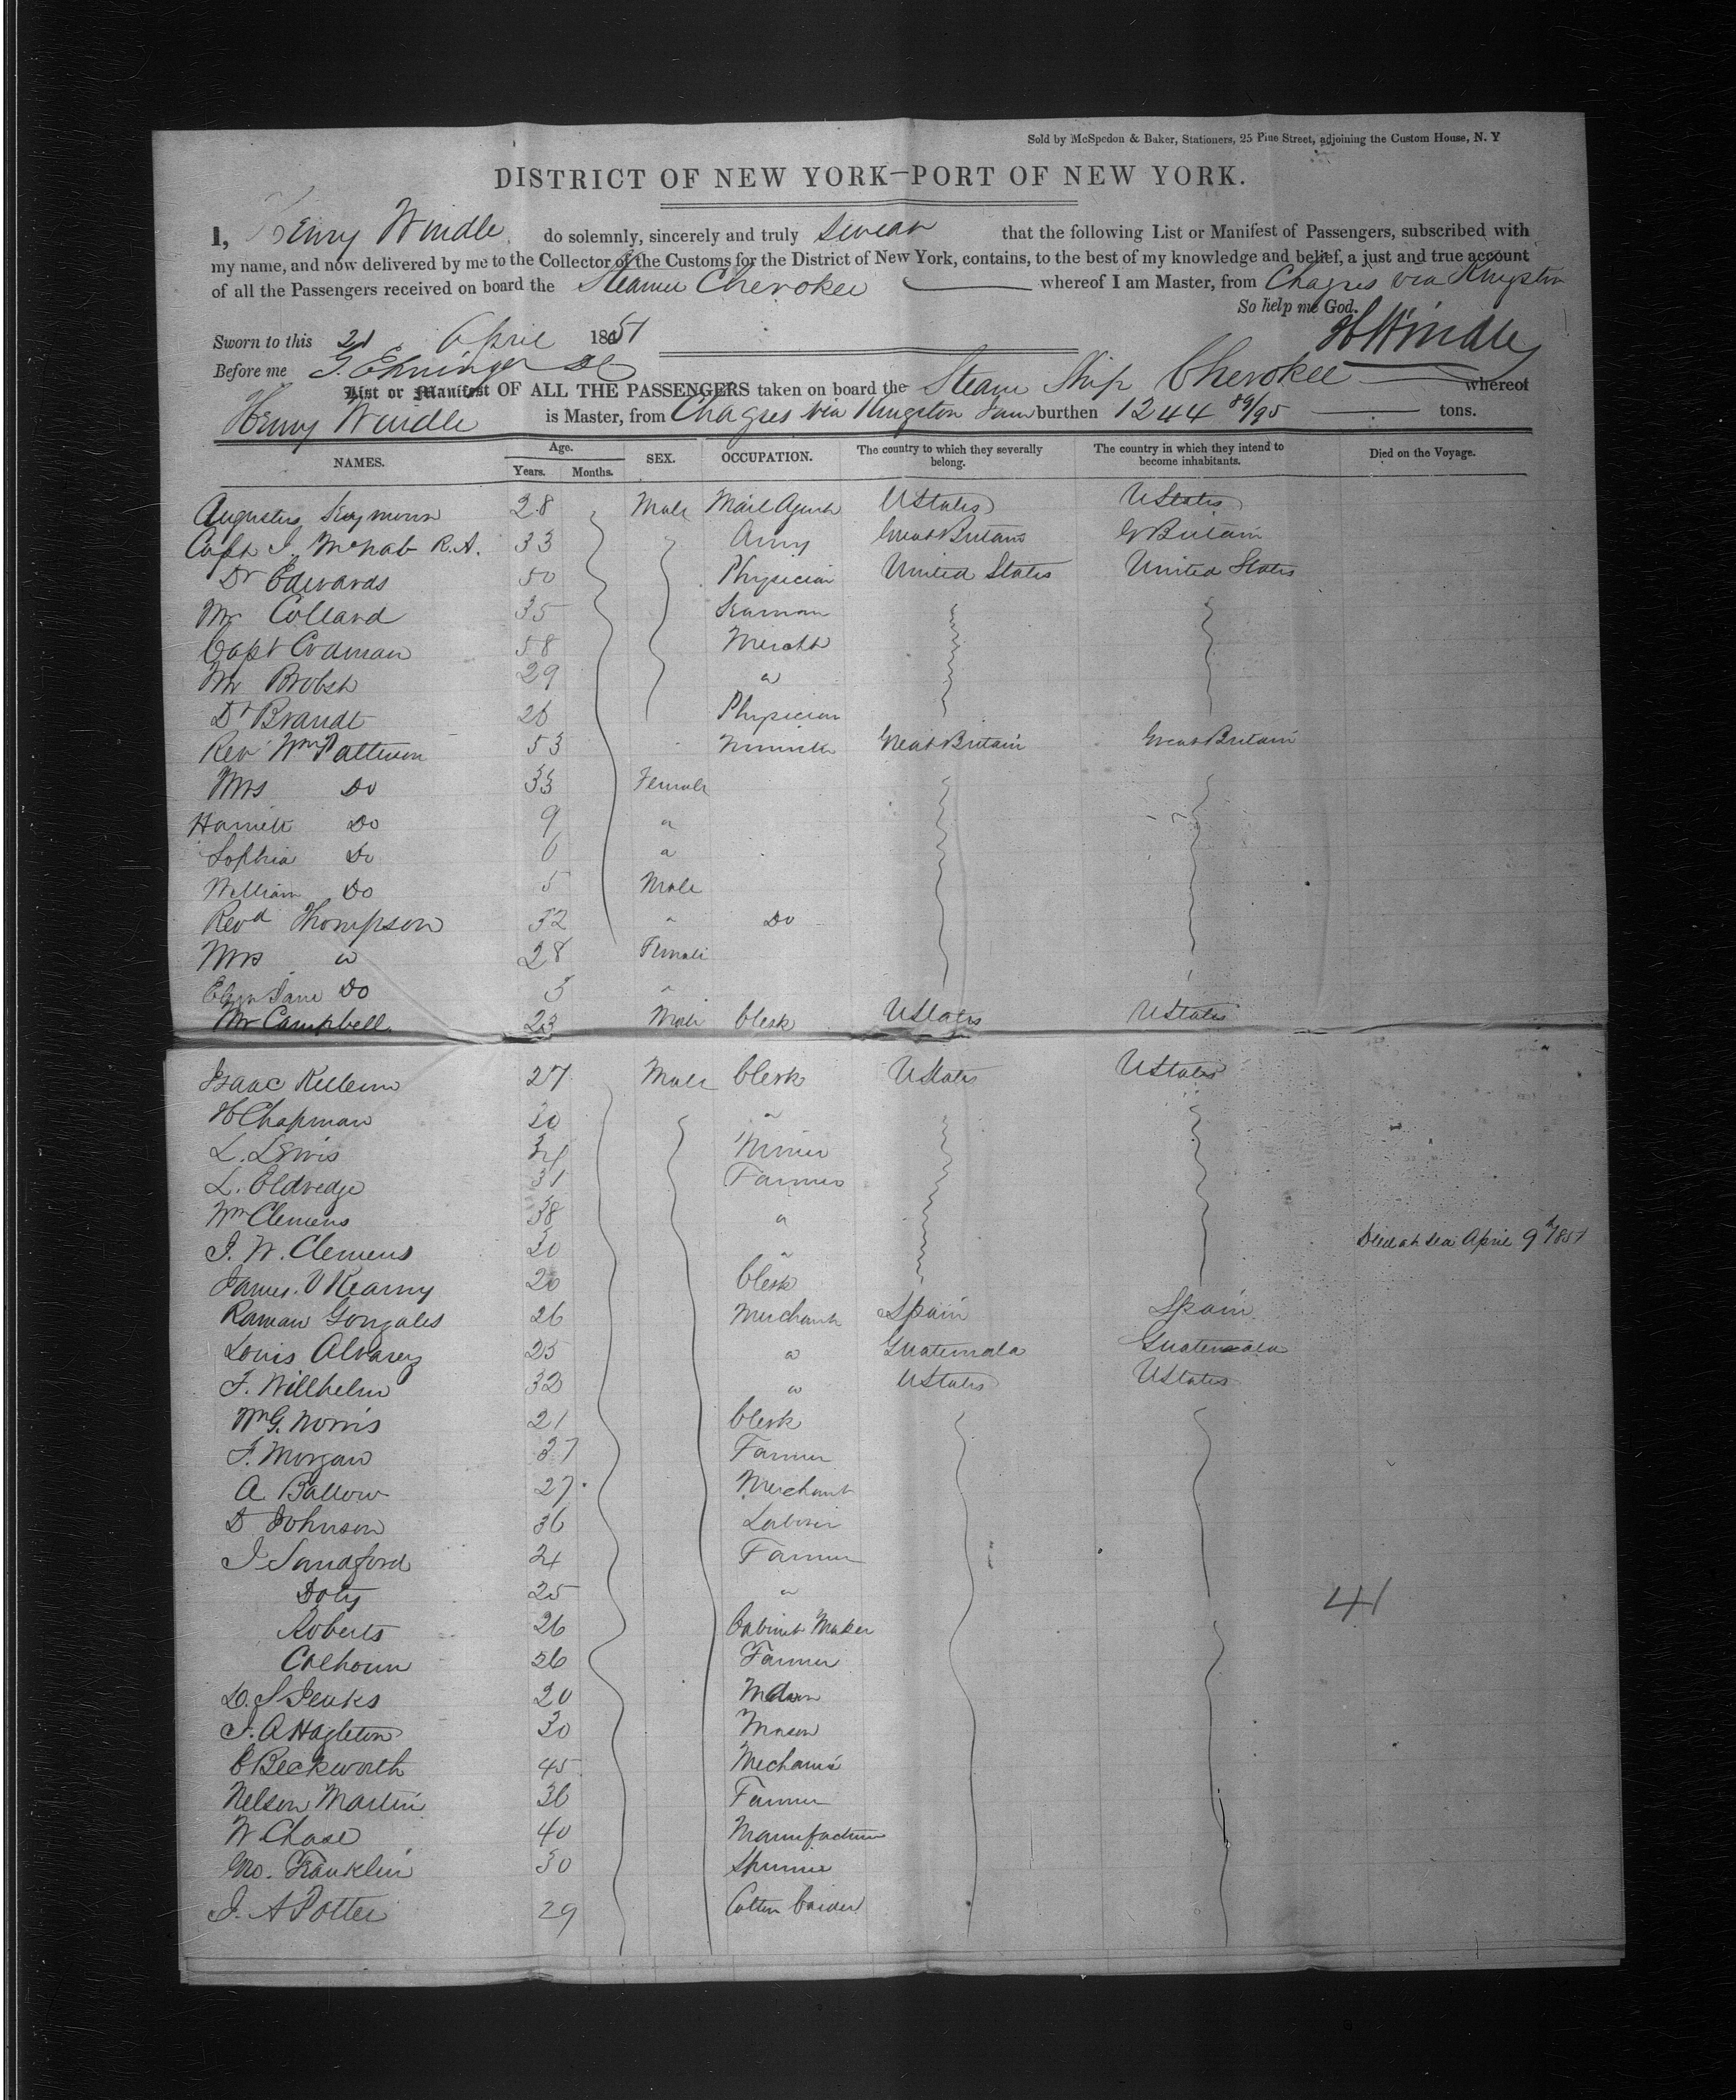 Sold by McSpedon & Baker, Stationers, 25 Pine Street, adjoining the Custom House, N. Y
DISTRICT OF NEW YORK—PORT OF NEW YORK.
I, Henry Windle do solemnly, sincerely and truly swear that the following List or Manifest of Passengers, subscribed with
my name, and now delivered by me to the Collector of the Customs for the District of New York, contains, to the best of my knowledge and belief, a just and true account
of all the Passengers received on board the Steamer Cherokee whereof I am Master, from Chagres via Kingston
So help me God.
Sworn to this 21 April 1851 H Windle
Before me G. Ehninger
List or Manifest OF ALL THE PASSENGERS taken on board the Steam Ship Cherokee whereof
Henry Windle is Master, from Chagres via Kingston Jam burthen 1244 89/95 tons.
NAMES. Age. Years. Months. SEX. OCCUPATION. The country to which they severally belong. The country in which they intend to become inhabitants. Died on the Voyage.
Augustus Seymour 28 Male Mail Agent UStates UStates
Capt J. McNab R.A. 33 Army Great Britain G Britain
Dr Edwards 50 Physician United States United States
Mr Collard 35 Seaman
Capt Codman 58 Mercht
Mr Brobsh 29 "
Dr Brandt 26 Physician
Rev Wm Pattison 53 Great Britain Great Britain
Mrs Do 33 Female
Harriett Do 9 "
Sophia Do 6 "
William Do 5 Male
Revd Thompson 32 " Do
Mrs " 28 Female
Eliza Jane Do 3 "
Mr Campbell 23 Male Clerk UStates UStates
Isaac 27 Male Clerk UStates UStates
H Chapman 20 "
L. Lewis Miner
L. Eldredge 31 Farmer
Wm Clemens 38 "
J. W. Clemens 20 " Died at Sea April 9th 1851
James. V Kearny 20 Clerk
Raman Gonzales 26 Merchant Spain Spain
Louis Alvarez 25 " Guatemala Guatemala
F. Willhelm 32 " UStates UStates
Wm G. Norris 21 Clerk
F. Morgan 37 Farmer
A. Ballow 27 Merchant
D Johnson 36 Laborer
J Sandford 24 Farmer
Doty 25 "
41
Roberts 26 Cabinet Maker
Calhoun 26 Farmer
D. S Jenks 20
J. A Hagleton 30 Mason
C Beckworth 45 Mechanic
Nelson Martin 36 Farmer
W Chase 40 Manufacturer
Jno. Franklin 30 Spinner
J. A Potter 29 Cotton Carder